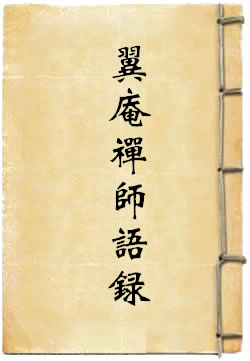 翼庵禪師語録